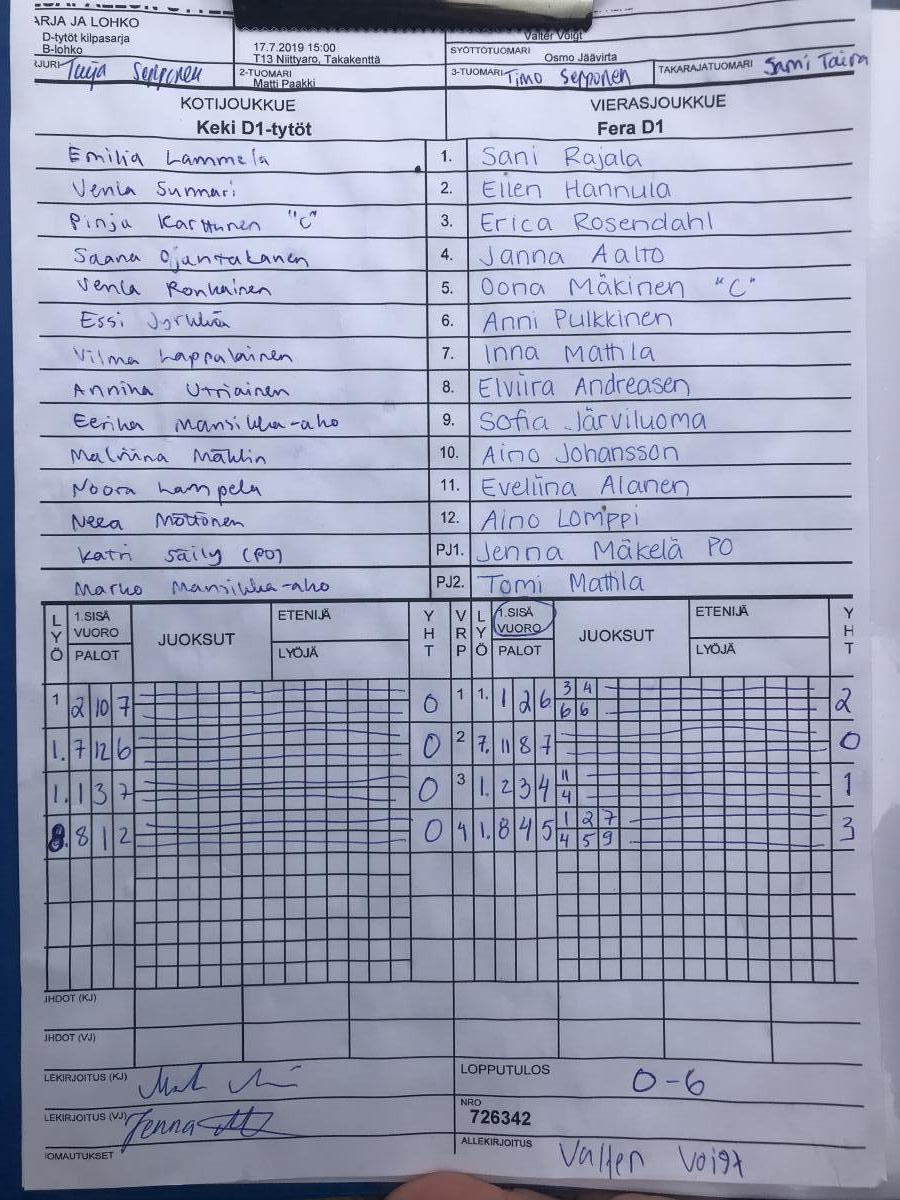 ARJA JA LOHKO
D-tytöt kilpasarja
B-lohko
17.7.2019 15:00
T13 Niittyaro, Takakenttä
Valter Voigt
SYÖTTÖTUOMARI
Osmo Jäävirta
JURI Tuija Sepponen
2-TUOMARI
Matti Paakki
3-TUOMARI Timo Sepponen
TAKARAJATUOMARI Sami
KOTIJOUKKUE VIERASJOUKKUE
Keki D1-tytöt Fera D1
Emilia Lammela 1. Sani Rajala
Venla Summari 2. Ellen Hannula
Pinja Karttunen "C" 3. Erica Rosendahl
Saana 4. Janna Aalto
Venla Ronkainen 5. Oona Mäkinen "C"
Essi 6. Anni Pulkkinen
Vilma Lappalainen 7. Inna Mattila
Annina Utriainen 8. Elviira Andreasen
Eerika Mansikka-aho 9. Sofia Järviluoma
Malviina Mählin 10. Aino Johansson
Noora Lampela 11. Eveliina Alanen
Neea Möttönen 12. Aino Lomppi
Katri Säily (PO) PJ1. Jenna Mäkelä PO
Marko Mansikka-aho PJ2. Tomi Mattila
LYÖ 1.SISÄ VUORO PALOT JUOKSUT ETENIJÄ LYÖJÄ YHT VRP LYÖ 1.SISÄ VUORO PALOT JUOKSUT ETENIJÄ LYÖJÄ YHT
1 2 10 7 0 1 1. 1 2 6 3 4 2
6 6
1. 7 12 6 0 2 7. 11 8 7 0
1. 1 3 7 0 3 1. 2 3 4 11 1
4
8. 8 1 2 0 4 1. 8 4 5 1 2 7 3
4 5 9
JHDOT (KJ)
JHDOT (VJ)
LEKIRJOITUS (KJ)
LOPPUTULOS 0-6
LEKIRJOITUS (VJ) Jenna
NRO
726342
IOMAUTUKSET
ALLEKIRJOITUS Valtteri Voigt